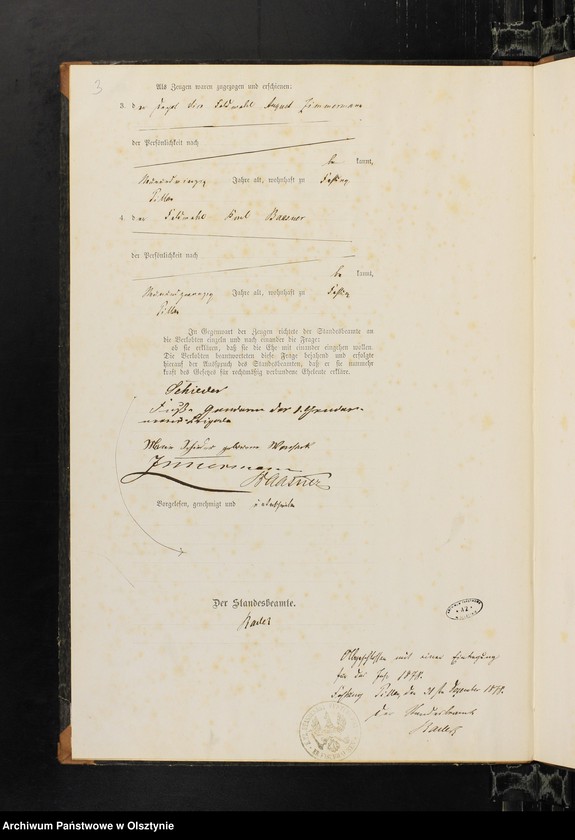 3
Als Zeugen waren zugezogen und erschienen:
3. der Feldwebel August Zimmermann
der Persönlichkeit nach
be kannt,
Jahre alt, wohnhaft zu Festung
Pillau
4. der Feldwebel Emil Baasner
der Persönlichkeit nach
be kannt,
Jahre alt, wohnhaft zu Festung
Pillau
In Gegenwart der Zeugen richtete der Standesbeamte an
die Verlobten einzeln und nach einander die Frage:
ob sie erklären, daß sie die Ehe mit einander eingehen wollen.
Die Verlobten beantworteten diese Frage bejahend und erfolgte
hierauf der Ausspruch des Standesbeamten, daß er sie nunmehr
kraft des Gesetzes für rechtmäßig verbundene Eheleute erkläre.
Schieder
Gendarm der 1. Gendar-
merie-Brigade
geborene
Zimmermann
Baasner
Vorgelesen, genehmigt und unterschrieben
Der Standesbeamte.
Abgeschlossen mit einer Eintragung
für das Jahr 1878.
Festung Pillau, den 31ten Dezember 1878.
Der Standesbeamte
Archiwum Państwowe w Olsztynie